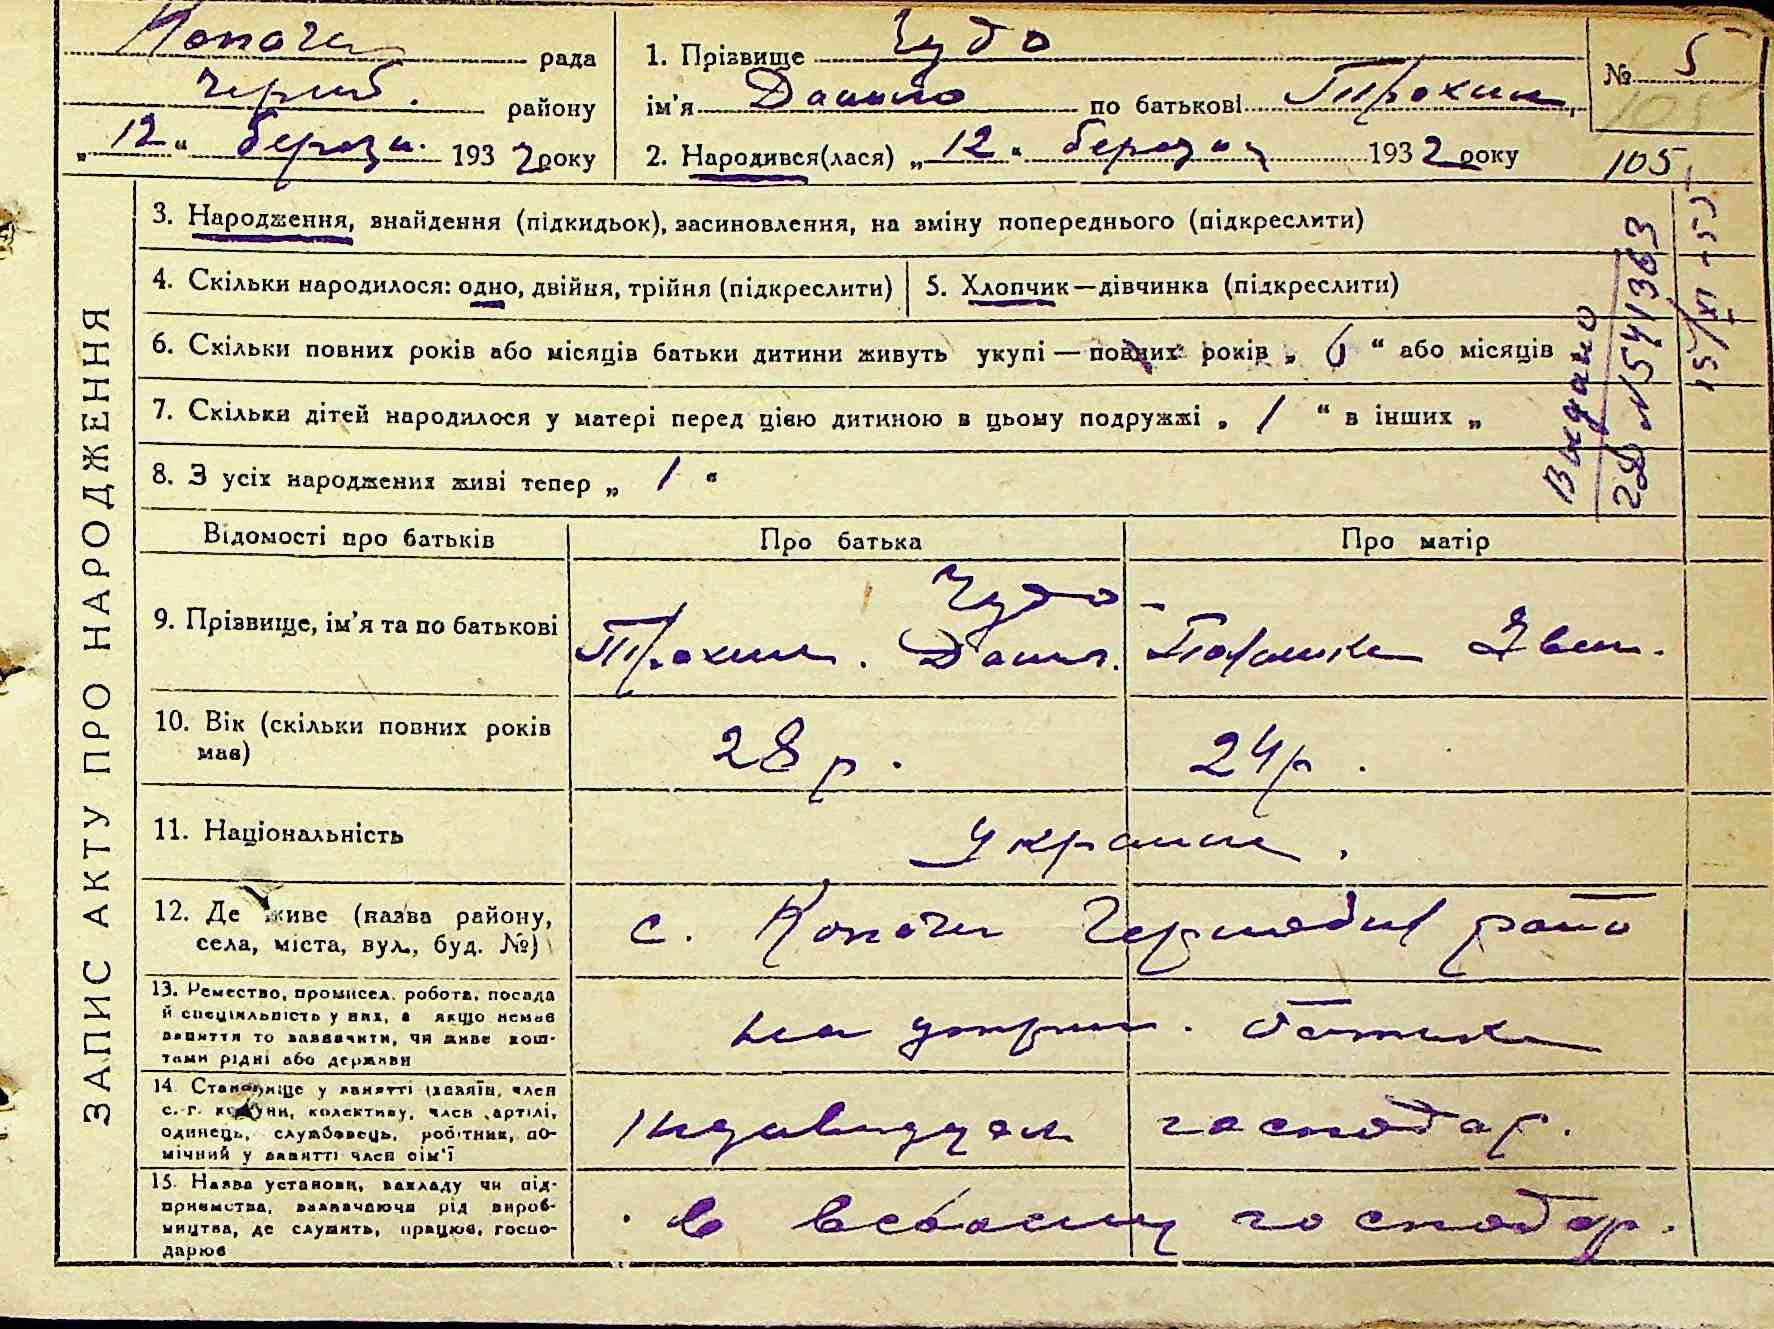 Копачи рада
Черноб. району
„12“ березн. 1932 року
1. Прізвище Чудо
ім'я Данило по батькові Трохим.
2. Народився(лася) „12“ березня 1932 року
№ 5
105
105
ЗАПИС АКТУ ПРО НАРОДЖЕННЯ
3. Народження, знайдення (підкидьок), засиновлення, на зміну попереднього (підкреслити)
4. Скільки народилося: одно, двійня, трійня (підкреслити)
5. Хлопчик—дівчинка (підкреслити)
6. Скільки повних років або місяців батьки дитини живуть укупі — повних років „ 6 “ або місяців
7. Скільки дітей народилося у матері перед цією дитиною в цьому подружжі „ 1 “ в інших „
8. З усіх народжених живі тепер „ 1 “
Видано
15/XI-55
Відомості про батьків Про батька Про матір
9. Прізвище, ім'я та по батькові
Чудо
Трохим. Данил.
10. Вік (скільки повних років
мав)
28 р. 24 р.
11. Національність
Украин.
12. Де живе (назва району,
села, міста, вул., буд. №)
с. Копачи район
13. Ремество, промисел, робота, посада
й спеціяльність у них, а якщо немає
заняття то зазначити, чи живе кош-
тами рідні або держави
на
14. Становище у занятті (хазяїн, член
с.-г. комуни, колективу, член артілі,
одинець, службовець, робітник, по-
мічний у занятті член сім'ї
господар.
15. Назва установи, закладу чи під-
приємства, зазначаючи рід вироб-
ництва, де служить, працює, госпо-
дарює
в господар.